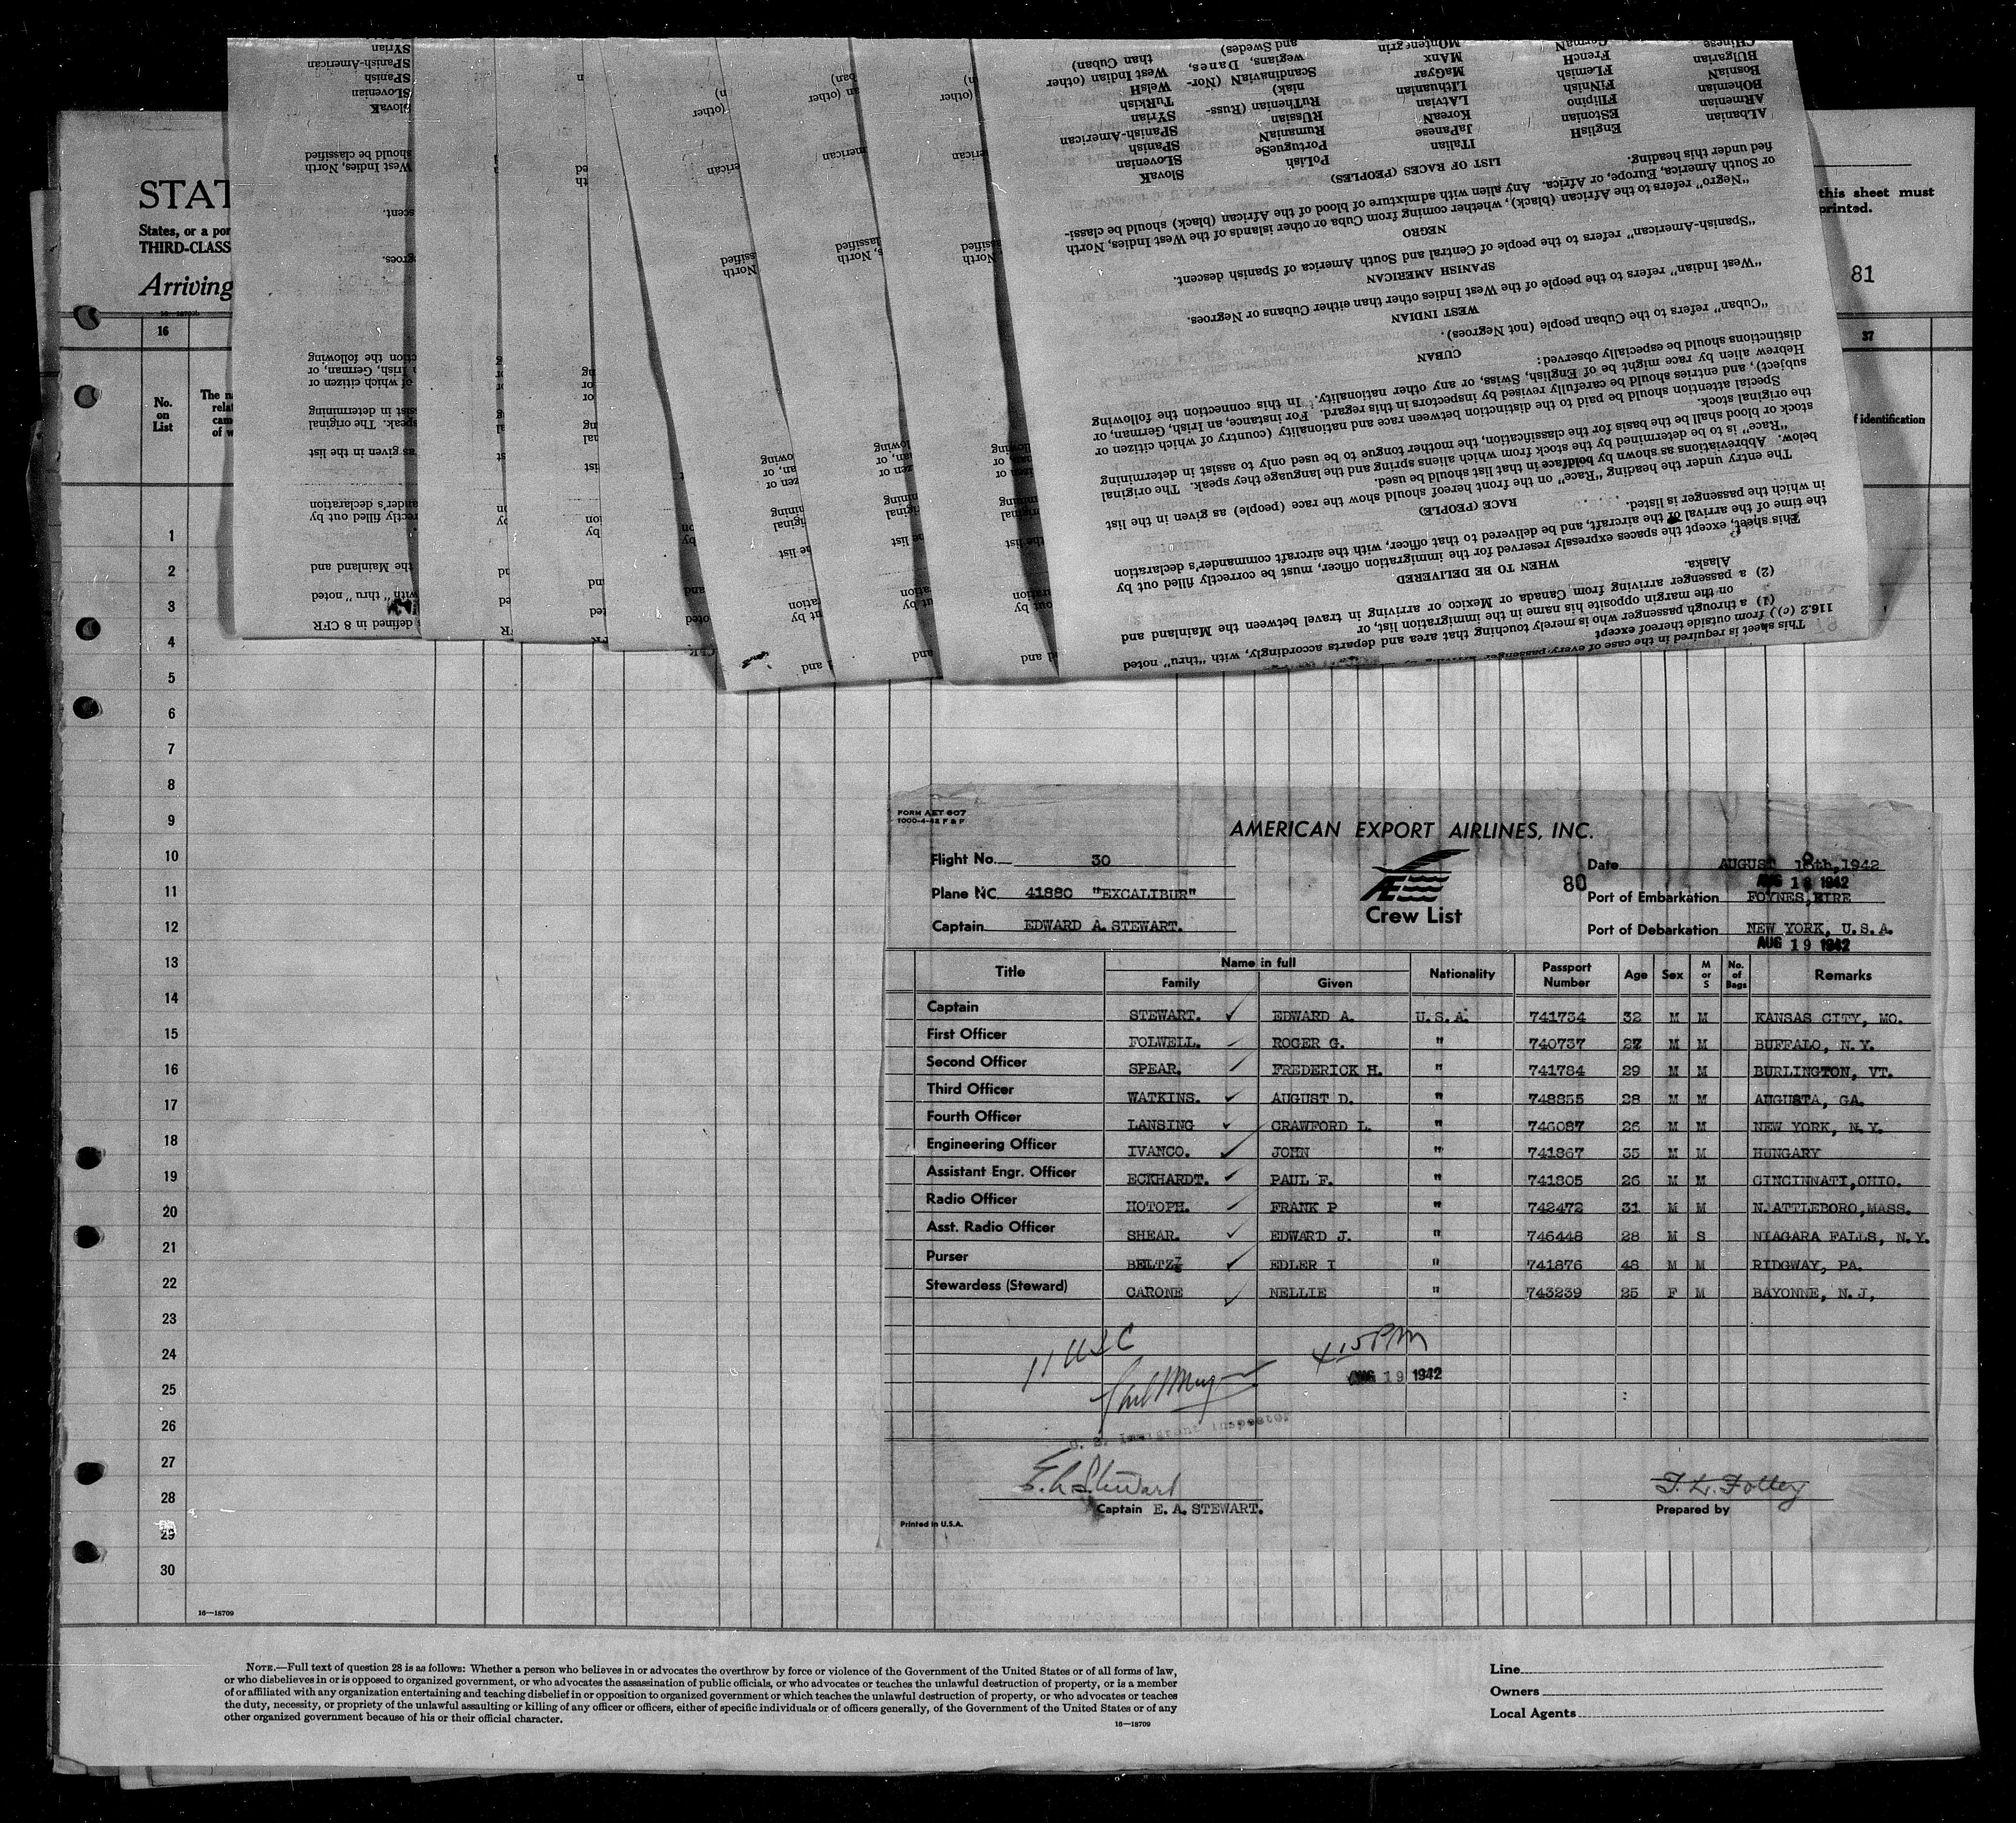 SYrian
SPanish-American
SPanish
SLovenian
SlovaK
should be classified
West Indies, North
scent.
groes.
ction the following
Irish, German, or
of which citizen or
sist in determining
speak. The original
as given in the list
ander's declaration
rectly filled out by
the Mainland and
with "thru" noted
defined in 8 CFR
This sheet is required in the case of every passenger
116.2 (c)) from outside thereof except
(1) a through passenger who is merely touching that area and departs accordingly, with "thru" noted
on the margin opposite his name in the immigration list, or
(2) a passenger arriving from Canada or Mexico or arriving in travel between the Mainland and
Alaska.
WHEN TO BE DELIVERED
This sheet, except the spaces expressly reserved for the immigration officer, must be correctly filled out by
the time of the arrival of the aircraft, and be delivered to that officer, with the aircraft commander's declaration
in which the passenger is listed.
RACE (PEOPLE)
The entry under the heading "Race" on the front hereof should show the race (people) as given in the list
below. Abbreviations as shown by boldface in that list should be used.
"Race" is to be determined by the stock from which aliens spring and the language they speak. The original
stock or blood shall be the basis for the classification, the mother tongue to be used only to assist in determining
the original stock.
Special attention should be paid to the distinction between race and nationality (country of which citizen or
subject), and entries should be carefully revised by inspectors in this regard. For instance, an Irish, German, or
Hebrew alien by race might be of English, Swiss, or any other nationality. In this connection the following
distinctions should be especially observed:
CUBAN
"Cuban" refers to the Cuban people (not Negroes).
WEST INDIAN
"West Indian" refers to the people of the West Indies other than either Cubans or Negroes.
SPANISH AMERICAN
"Spanish-American" refers to the people of Central and South America of Spanish descent.
NEGRO
"Negro" refers to the African (black), whether coming from Cuba or other islands of the West Indies, North
or South America, Europe, or Africa. Any alien with admixture of blood of the African (black) should be classi-
fied under this heading.
LIST OF RACES (PEOPLES)
ALbanian EnglisH ITALian PoLisH SlovaK
ARmenian EStonian JaPanese PortugueSe SLovenian
BOhemian FIlipino KoreaN RumaniaN SPanish
BosniaN FiNnisH LATvian RUssian SPanish-American
BUlgarian FLemish LIthuanian RuThenian (Russ- SYrian
CHinese FrencH MaGyar niak) TuRkish
GermaN MAnx ScandinaviaN (Nor- WelsH
MOntenegrin wegians, Danes, West Indian (other
and Swedes) than Cuban)
STAT
States, or a por
THIRD-CLASS
Arriving
this sheet must
printed.
81
16 37
No.
on
List
f identification
1
2
3
4
5
6
7
8
9
10
11
12
13
14
15
16
17
18
19
20
21
22
23
24
25
26
27
28
29
30
16—18709
FORM AET 607
1000-4-42 F & F
AMERICAN EXPORT AIRLINES, INC.
Flight No. 30
Date AUGUST 18th, 1942
AUG 18 1942
Plane NC 41880 "EXCALIBUR"
AE
80
Port of Embarkation FOYNES, EIRE
Crew List
Captain EDWARD A. STEWART.
Port of Debarkation NEW YORK, U.S.A.
AUG 19 1942
Title Name in full Family Given Nationality Passport Number Age Sex M or S No. of Bags Remarks
Captain STEWART. ✓ EDWARD A. U.S.A. 741734 32 M M KANSAS CITY, MO.
First Officer FOLWELL. ✓ ROGER G. " 740737 27 M M BUFFALO, N.Y.
Second Officer SPEAR. ✓ FREDERICK H. " 741784 29 M M BURLINGTON, VT.
Third Officer WATKINS. ✓ AUGUST D. " 748855 28 M M AUGUSTA, GA.
Fourth Officer LANSING ✓ CRAWFORD L. " 746087 26 M M NEW YORK, N.Y.
Engineering Officer IVANCO. ✓ JOHN " 741867 35 M M HUNGARY
Assistant Engr. Officer ECKHARDT. ✓ PAUL F. " 741805 26 M M CINCINNATI,OHIO.
Radio Officer HOTOPH. ✓ FRANK P " 742472 31 M M N.ATTLEBORO,MASS.
Asst. Radio Officer SHEAR. ✓ EDWARD J. " 746448 28 M S NIAGARA FALLS, N.Y.
Purser BELTZ ✓ EDLER I " 741876 48 M M RIDGWAY, PA.
Stewardess (Steward) CARONE ✓ NELLIE " 743239 25 F M BAYONNE, N.J,
11 USC
415 PM
AUG 19 1942
U. S. Immigrant Inspector
E. A. Stewart
Captain E. A. STEWART.
Prepared by
Printed in U.S.A.
NOTE.—Full text of question 28 is as follows: Whether a person who believes in or advocates the overthrow by force or violence of the Government of the United States or of all forms of law,
or who disbelieves in or is opposed to organized government, or who advocates the assassination of public officials, or who advocates or teaches the unlawful destruction of property, or is a member
of or affiliated with any organization entertaining and teaching disbelief in or opposition to organized government or which teaches the unlawful destruction of property, or who advocates or teaches
the duty, necessity, or propriety of the unlawful assaulting or killing of any officer or officers, either of specific individuals or of officers generally, of the Government of the United States or of any
other organized government because of his or their official character.
16—18709
Line
Owners
Local Agents